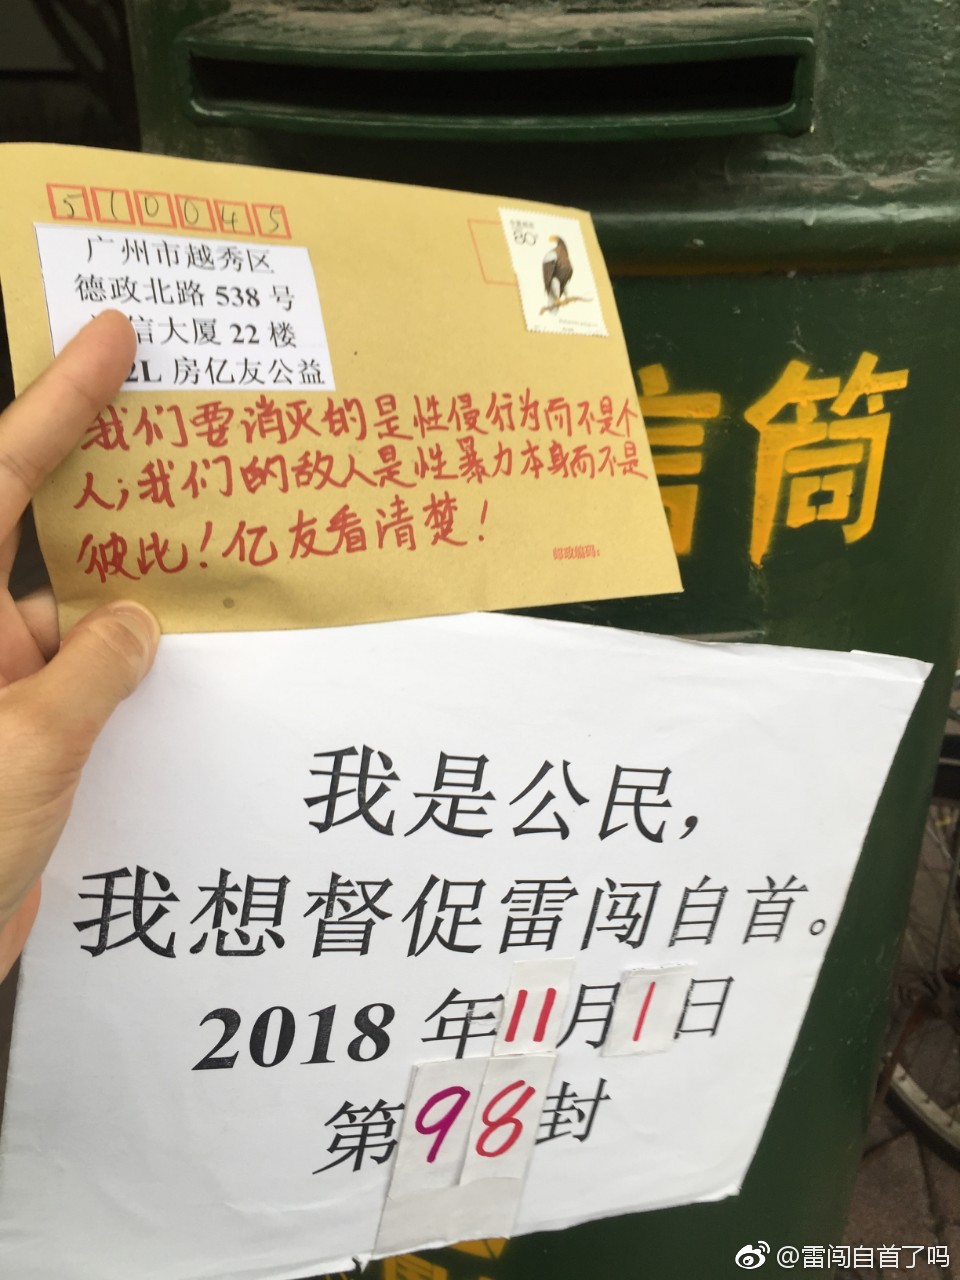 510045
80
广州市越秀区
德政北路 538 号
信大厦 22 楼
2L 房亿友公益
我们要消灭的是性侵行为而不是个
人；我们的敌人是性暴力本身而不是
彼此！亿友看清楚！
邮政编码：
信筒
我是公民，
我想督促雷闯自首。
2018 年11月1日
第98封
@雷闯自首了吗